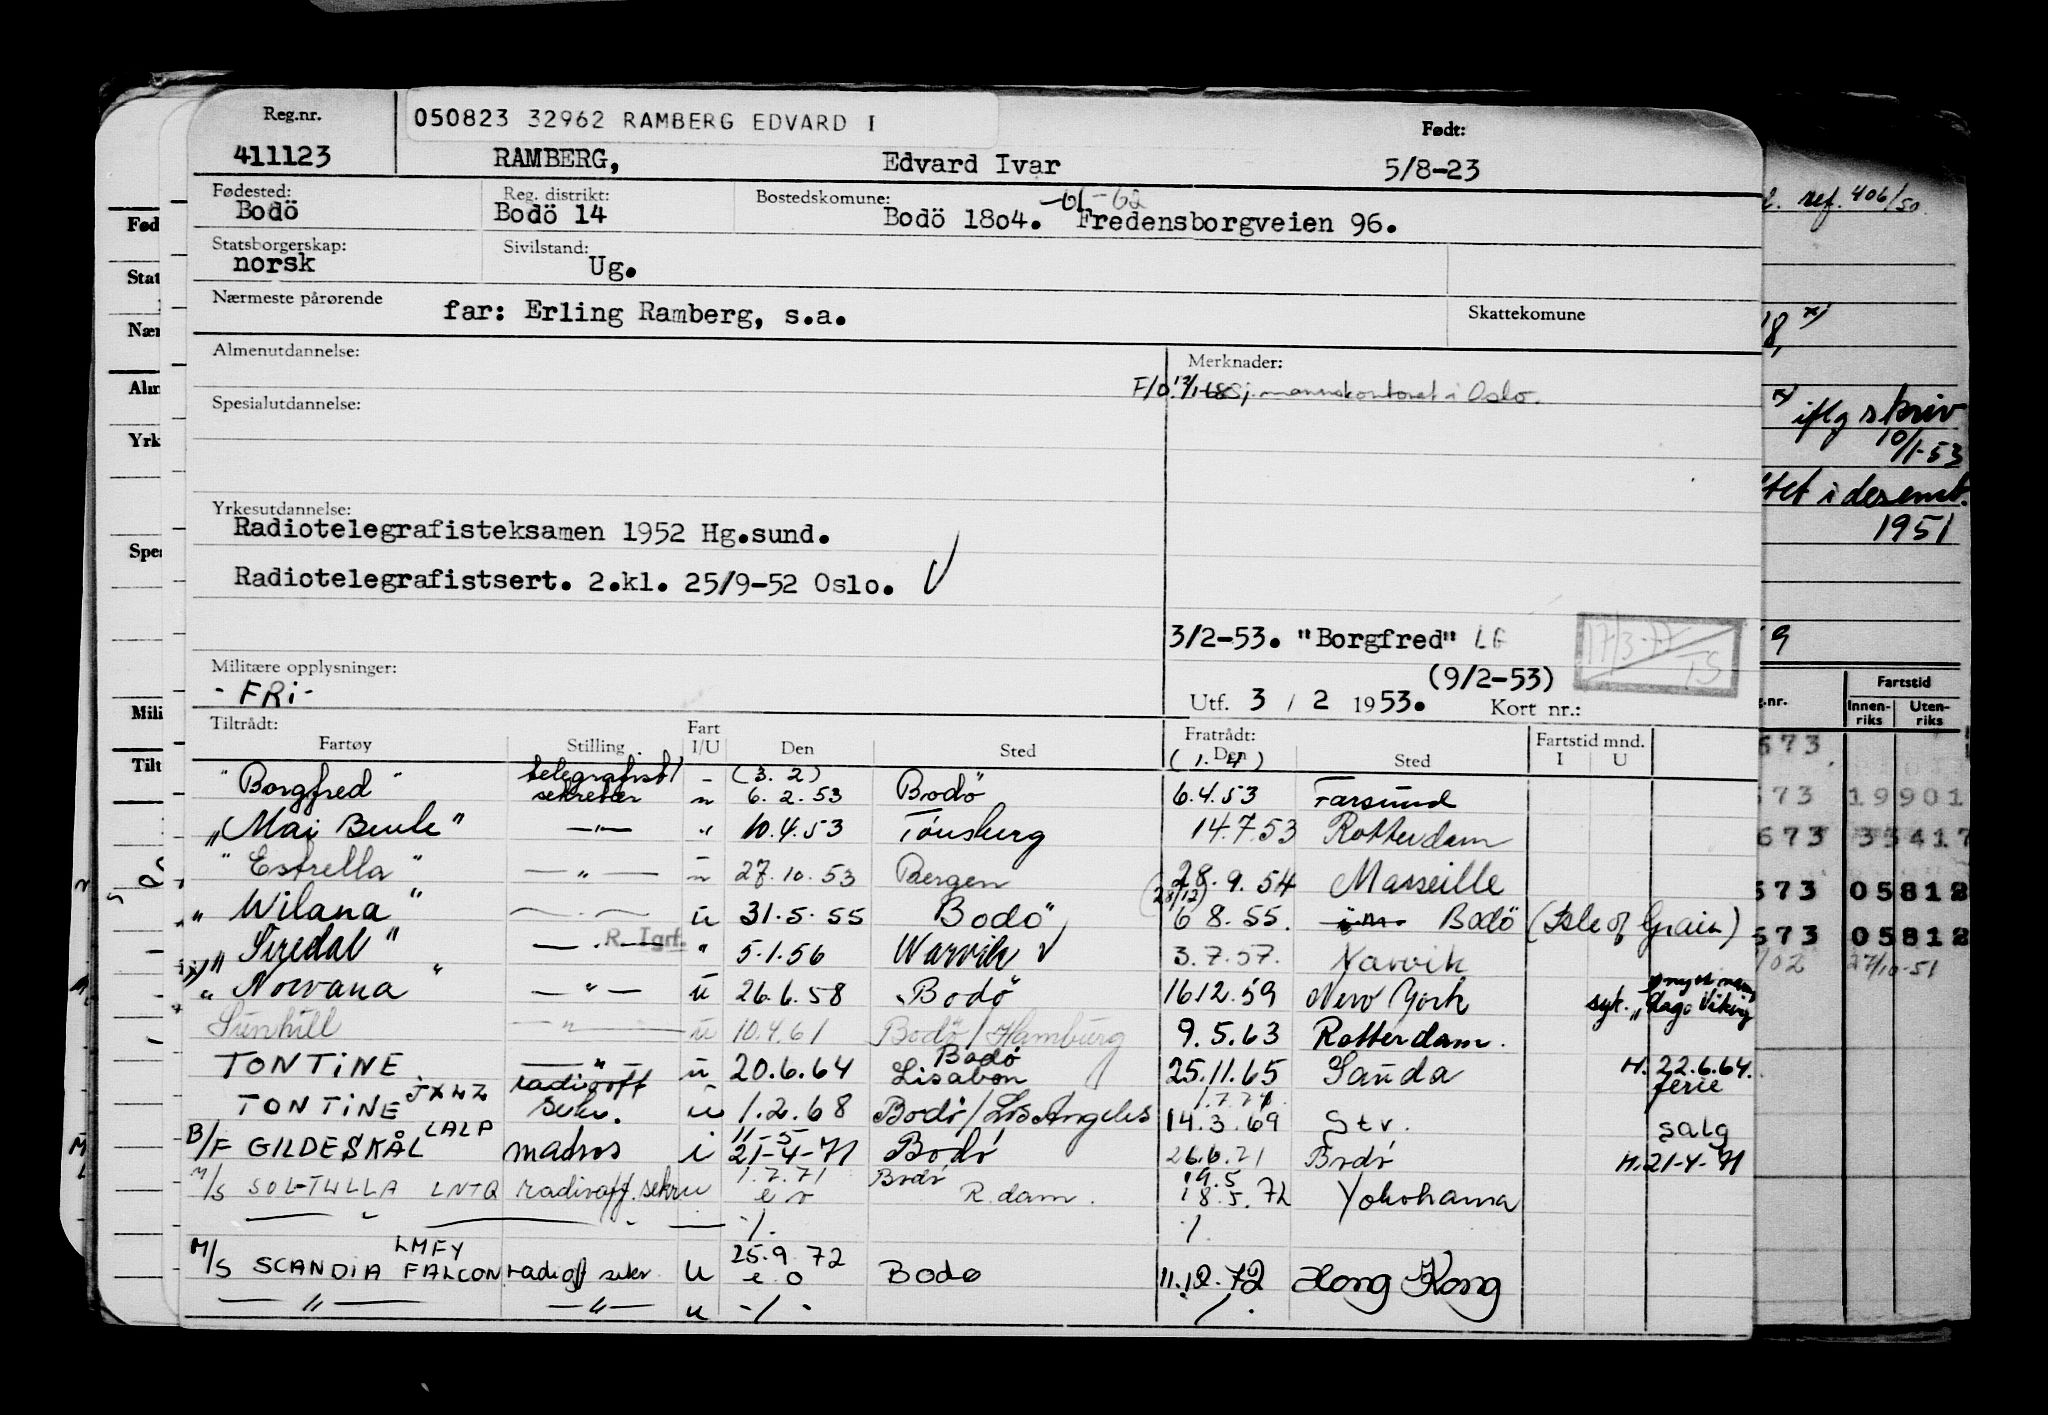 Reg.nr. 050823 32962 RAMBERG EDVARD I Født:
411123 RAMBERG, Edvard Ivar 5/8-23
Fødested: Reg. distrikt: Bostedskomune: -61-62
Bodö Bodö 14 Bodö 1804. Fredensborgveien 96.
Statsborgerskap: Sivilstand:
norsk Ug.
Nærmeste pårørende far: Erling Ramberg, s.a. Skattekomune
Almenutdannelse: Merknader:
Spesialutdannelse: mannskontoret i Oslo.
Yrkesutdannelse:
Radiotelegrafisteksamen 1952 Hg.sund.
Radiotelegrafistsert. 2.kl. 25/9-52 Oslo.
3/2-53. "Borgfred" 17/3-77 TS
Militære opplysninger: (9/2-53)
- FRi - Utf. 3 / 2 1953. Kort nr.:
Tiltrådt: Fart Fratrådt: Fartstid mnd.
Fartøy Stilling I/U Den Sted Den Sted I U
"Borgfred" telegrafist/ sekretær (3.2) 6.2.53 Bodö (1.4) 6.4.53 Farsund
"Mai Bente" —"— " 10.4.53 Tönsberg 14.7.53 Rotterdam
"Estrella" —"— 27.10.53 Bergen 28.9.54 Marseille
"Wilana" u 31.5.55 Bodö (28/12) 6 8.55. Bodö (Isle of Grain)
"Siredal" R.Tgrf. " 5.1.56 Narvik 3.7.57. Narvik
"Norvana" —"— u 26.6.58 Bodö 16.12.59 New York syk.
Sunhill —"— u 10.4.61 Bodö/Hamburg 9.5.63 Rotterdam.
TONTINE —"— u 20.6.64 Bodö Lisabon 25.11.65 Sauda H. 22.6.64. ferie
TONTINE JXLZ radiooff sekr. u 1.2.68 Bodö/Los Angeles 14.3.69 Stv. salg
B/F GILDESKÅL LALP matros i 11-5 21-4-71 Bodö 26.6.71 Bodö H.21-4-71
M/S SOL-TULLA LNTQ radiooff. sekr u 1.7.71 e o Bodö R.dam. 19.5 18.5.72 Yokohama
—"— —"— — -/. /.
M/S SCANDIA FALCON LMFY radioff sekr u 25.9.72 e o Bodø 11.12.72 Hong Kong
—"— —"— u -/- /.
Fød
Stat
Nær
Alm
Yrk
Spes
Mili
Tilt
ref. 406/50.
18, x)
x) iflg skriv
10/1-53
i desemb.
1951
9
Fartstid
Innen-riks Uten-riks
673
573 19901
673 33417
573 05812
573 05812
27/10-51